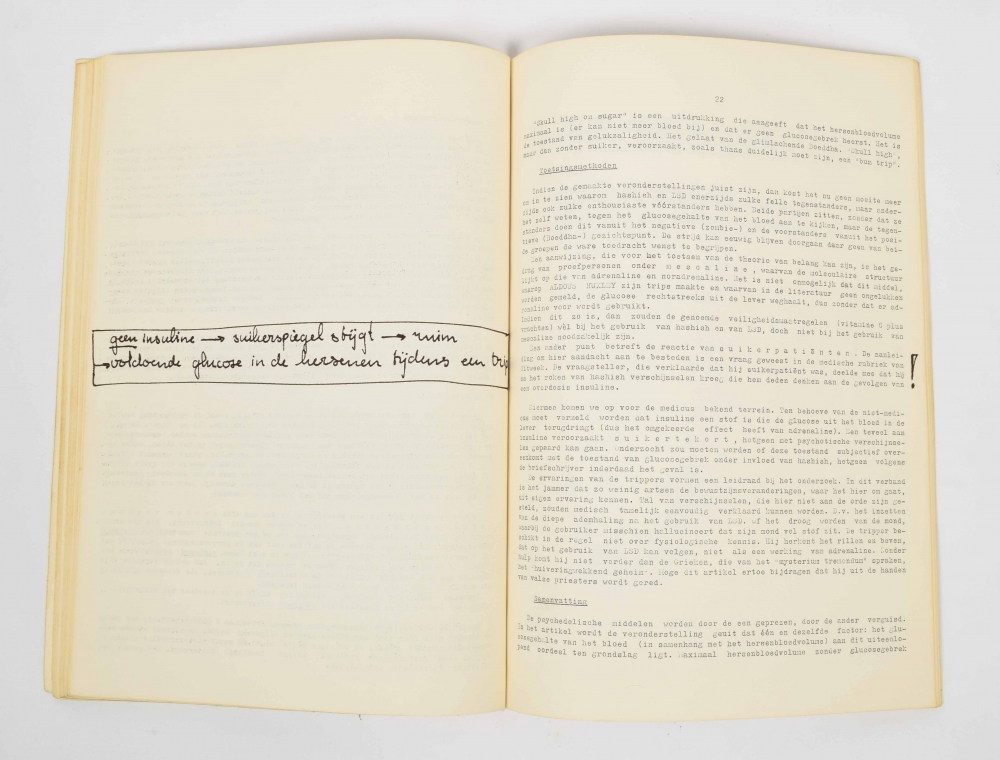 geen insuline → suikerspiegel stijgt → ruim
→ voldoende glucose in de hersenen tijdens een trip
22
"Skull high on sugar" is een uitdrukking die aangeeft dat het hersenbloedvolume
maximaal is (er kan niet meer bloed bij) en dat er geen glucosegebrek heerst. Het is
de toestand van gelukzaligheid. Het gelaat van de glimlachende Boeddha. "Skull high",
maar dan zonder suiker, veroorzaakt, zoals thans duidelijk moet zijn, een "bum trip".
Toetsingsmethoden
Indien de gemaakte veronderstellingen juist zijn, dan kost het nu geen moeite meer
om in te zien waarom hashish en LSD enerzijds zulke felle tegenstanders, maar ander-
zijds ook zulke enthousiaste vóórstanders hebben. Beide partijen zitten, zonder dat ze
het zelf weten, tegen het glucosegehalte van het bloed aan te kijken, maar de tegen-
standers doen dit vanuit het negatieve (zombie-) en de voorstanders vanuit het posi-
tieve (Boeddha-) gezichtspunt. De strijd kan eeuwig blijven doorgaan daar geen van bei-
de groepen de ware toedracht wenst te begrijpen.
Een aanwijzing, die voor het toetsen van de theorie van belang kan zijn, is het ge-
drag van proefpersonen onder mescaline, waarvan de moleculaire structuur
lijkt op die van adrenaline en noradrenaline. Het is niet onmogelijk dat dit middel,
waarop ALDOUS HUXLEY zijn trips maakte en waarvan in de literatuur geen ongelukken
worden gemeld, de glucose rechtstreeks uit de lever weghaalt, dus zonder dat er ad-
renaline voor wordt gebruikt.
Indien dit zo is, dan zouden de genoemde veiligheidsmaatregelen (vitamine C plus
vruchten) wèl bij het gebruik van hashish en van LSD, doch niet bij het gebruik van
mescaline noodzakelijk zijn.
Een ander punt betreft de reactie van suikerpatiënten. De aanlei-
ding om hier aandacht aan te besteden is een vraag geweest in de medische rubriek van
Hitweek. De vraagsteller, die verklaarde dat hij suikerpatiënt was, deelde mee dat hij
na het roken van hashish verschijnselen kreeg die hem deden denken aan de gevolgen van
een overdosis insuline.
!
Hiermee komen we op voor de medicus bekend terrein. Ten behoeve van de niet-medi-
cus moet vermeld worden dat insuline een stof is die de glucose uit het bloed in de
lever terugdringt (dus het omgekeerde effect heeft van adrenaline). Een teveel aan
insuline veroorzaakt suikertekort, hetgeen met psychotische verschijnse-
len gepaard kan gaan. Onderzocht zou moeten worden of deze toestand subjectief over-
eenkomt met de toestand van glucosegebrek onder invloed van hashish, hetgeen volgens
de briefschrijver inderdaad het geval is.
De ervaringen van de trippers vormen een leidraad bij het onderzoek. In dit verband
is het jammer dat zo weinig artsen de bewustzijnsveranderingen, waar het hier om gaat,
uit eigen ervaring kennen. Tal van verschijnselen, die hier niet aan de orde zijn ge-
steld, zouden medisch tamelijk eenvoudig verklaard kunnen worden. B.v. het inzetten
van de diepe ademhaling na het gebruik van LSD. Of het droog worden van de mond,
waarbij de gebruiker misschien hallucineert dat zijn mond vol stof zit. De tripper be-
schikt in de regel niet over fysiologische kennis. Hij herkent het rillen en beven,
dat op het gebruik van LSD kan volgen, niet als een werking van adrenaline. Zonder
hulp komt hij niet verder dan de Grieken, die van het "mysterium tremendum" spraken,
het "huiveringwekkend geheim". Moge dit artikel ertoe bijdragen dat hij uit de handen
van valse priesters wordt gered.
Samenvatting
De psychedelische middelen worden door de een geprezen, door de ander verguisd.
In het artikel wordt de veronderstelling geuit dat één en dezelfde factor: het glu-
cosegehalte van het bloed (in samenhang met het hersenbloedvolume) aan dit uiteenlo-
pend oordeel ten grondslag ligt. Maximaal hersenbloedvolume zonder glucosegebrek